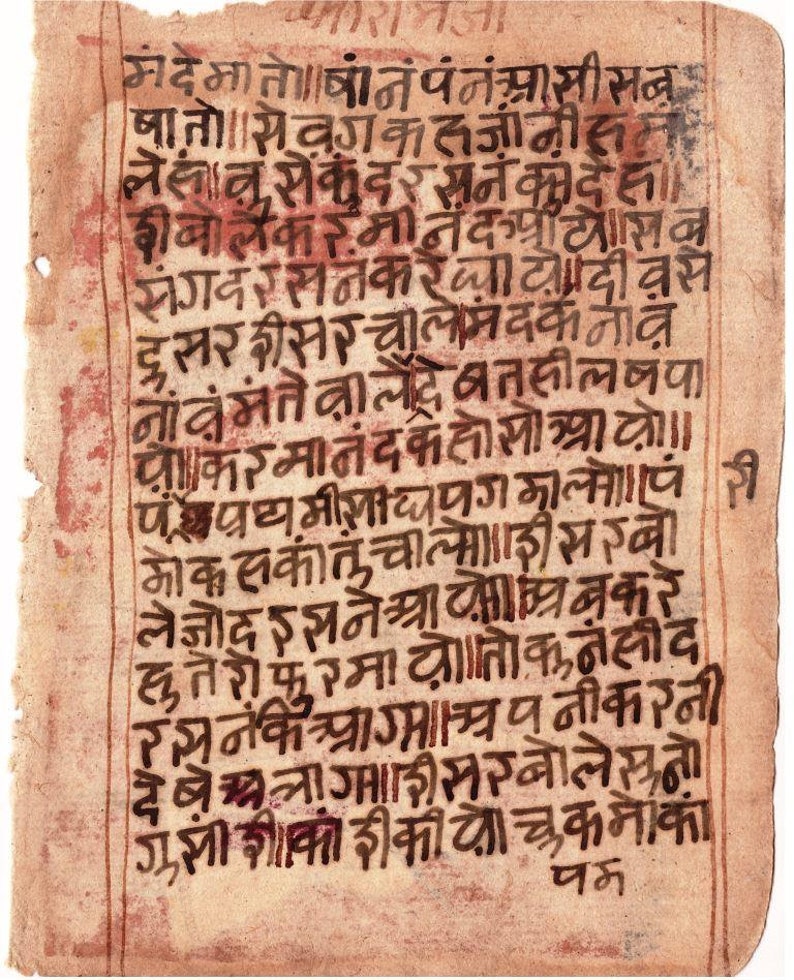 मंदेमातो॥षांनंपंनंआसीसब
षातो॥सेवगकहजांनीहम
लेहं॥वुसेकुंदरसनंकुंदेहं॥
ईबोलेकरमांनंदआयो॥सब
संगदरसनंकरेघायो॥दीवस
दुसरईसरचाले।मंदकंनाव
नांवंमंतेवाले।देषतहीलषपा
यो॥करमानंदकहोसोआयो॥
पं प्रथमीसाघपगमाल्मो॥पं
ई
मोकसकांतुंचाल्मो॥ईसरबो
लेजोदरसनेआयो॥अबकरे
हुतेरोफुरमायो॥तोकुनंहीद
रसनंकिआग्म॥अपनीकरनी
देषे लाग्म॥ईसरबोलेसुनो
गुसाई॥कांईकीयोचुकमोकां
पम